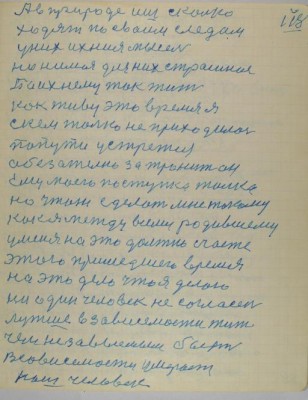 118
А в природе их сколко
ходят по своим следам
у них ихния мысел
но нимоя для них страшное
По ихнему так жит
как живу это время я
с кем толко не приходилос
по пути устретил
обезателно затронит он
Ему моего поступка
но что ж сделат мне такому
как я между всеми родившему
у меня на это должно счасте
этого пришедшего время
на это дело что я делою
ни один человек не согласен
лутше в зависемости жит
чем независемым быт
В зависимости умират
наш человек